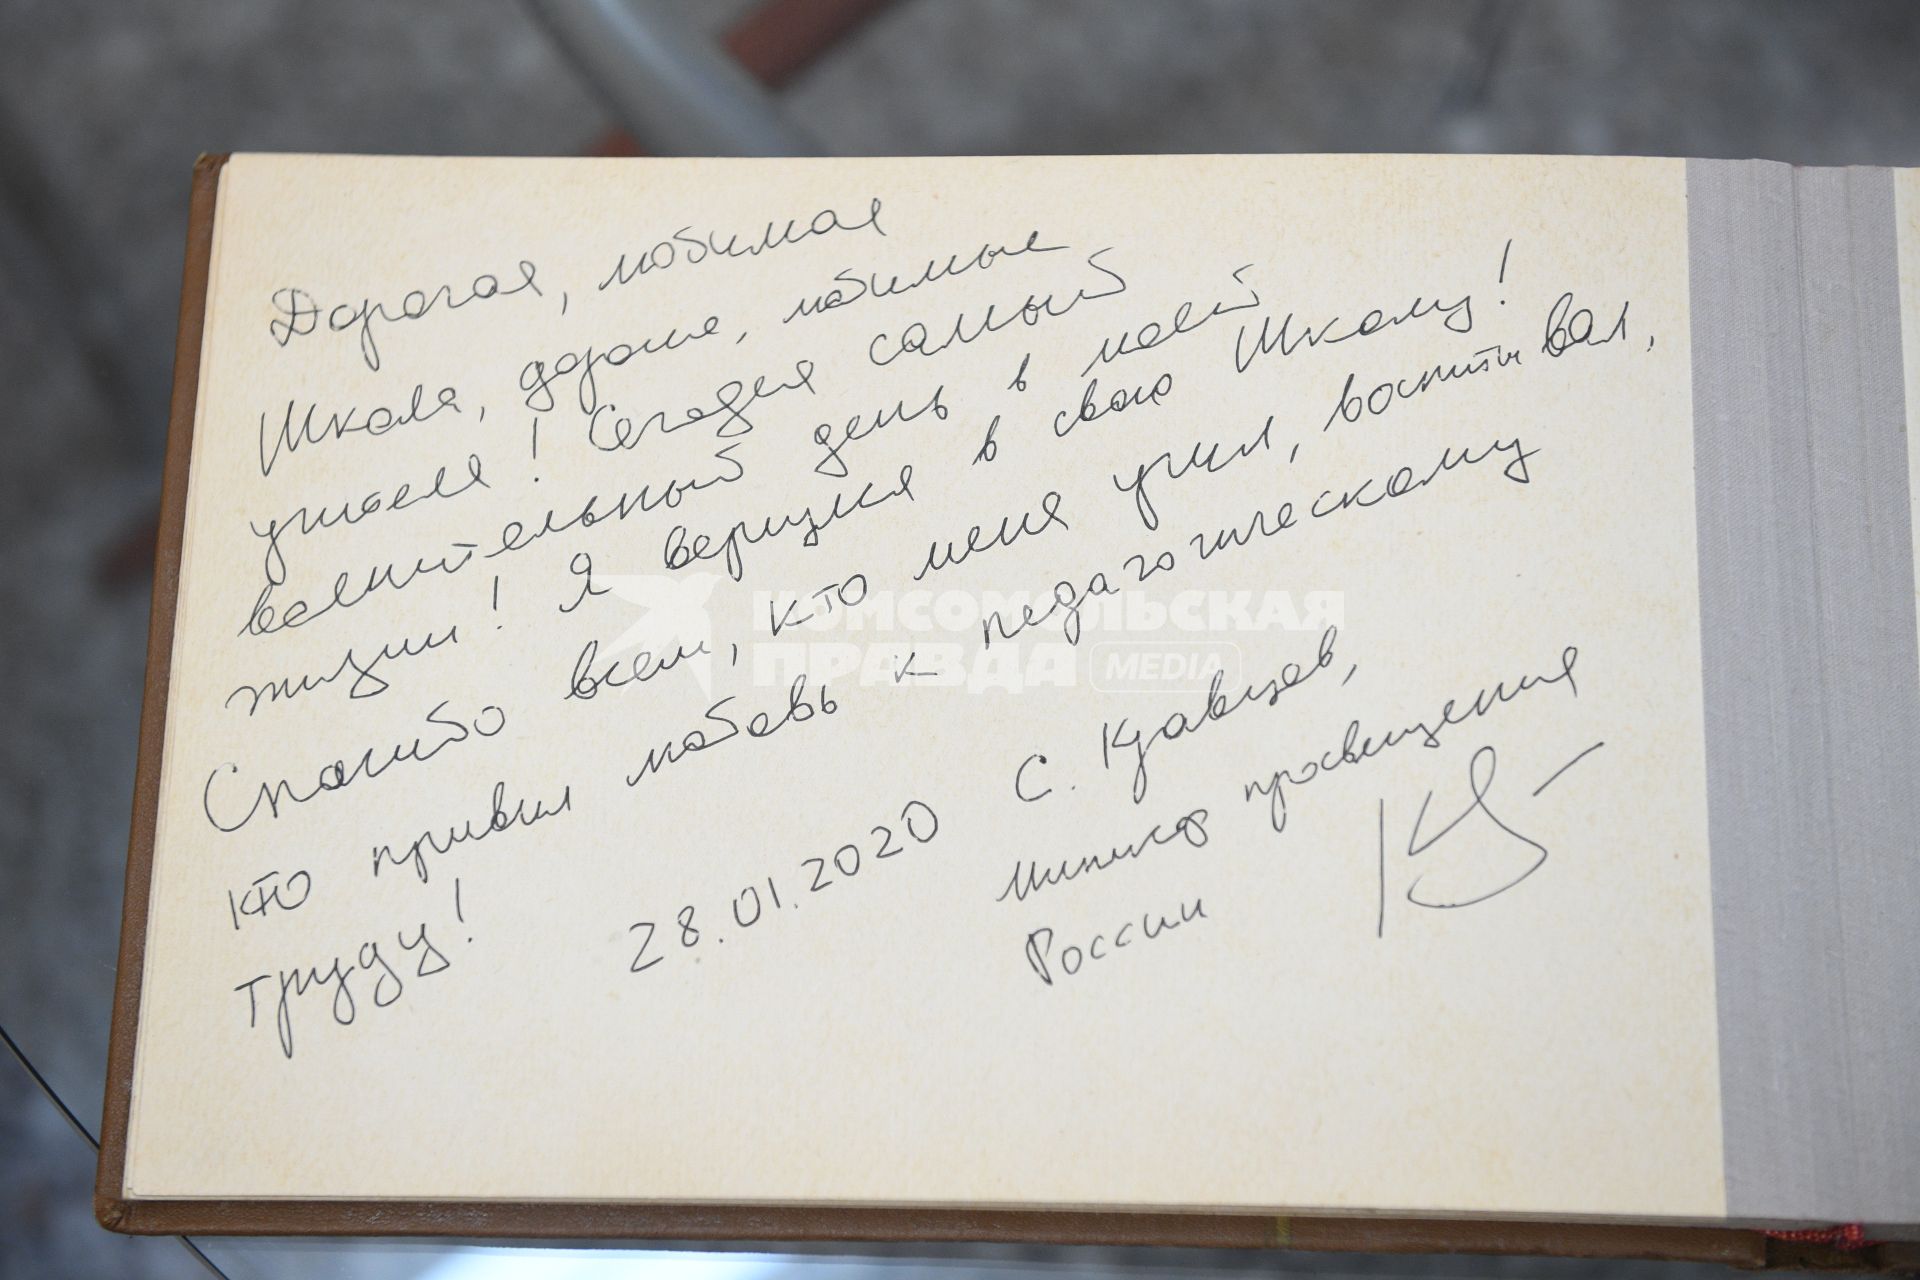 Дорогая, любимая
Школа, дорогие, любимые
учителя! Сегодня самый
волнительный день в моей
жизни! Я вернулся в свою Школу!
Спасибо всем, кто меня учил, воспитывал,
кто привил любовь к педагогическому
труду!
28.01.2020 С. Кравцов,
Министр просвещения
России
КОМСОМОЛЬСКАЯ
ПРАВДА MEDIA